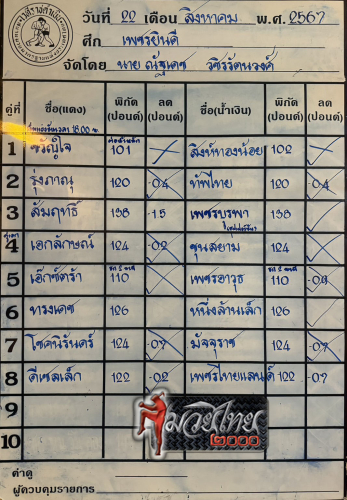 วันที่ 22 เดือน สิงหาคม พ.ศ. 2567
ศึก เพชรยินดี
จัดโดย นาย ณัฐเดช วชิรรัตนวงศ์
คู่ที่ ชื่อ(แดง) พิกัด (ปอนด์) ลด (ปอนด์) ชื่อ(น้ำเงิน) พิกัด (ปอนด์) ลด (ปอนด์)
1 ขวัญใจ 101 สิงห์ทองน้อย 102
2 รุ่งภาณุ 120 -0.4 ทัพไทย 120 -0.4
3 สัมฤทธิ์ 138 -1.5 เพชรบูรพา 138
4 เอกลักษณ์ 124 -0.2 ขุนสยาม 124
5 เอ็กซ์ตร้า 110 เพชรอาวุธ 110
6 ทรงเดช 126 หนึ่งล้านเล็ก 126
7 โชคนิรันดร์ 124 -0.7 มัจจุราช 124 -0.7
8 ดีเซลเล็ก 122 -0.2 เพชรไทยแลนด์ 122 -0.7
9
10
มวยไทย
2000
ค่าดู
ผู้ควบคุมรายการ